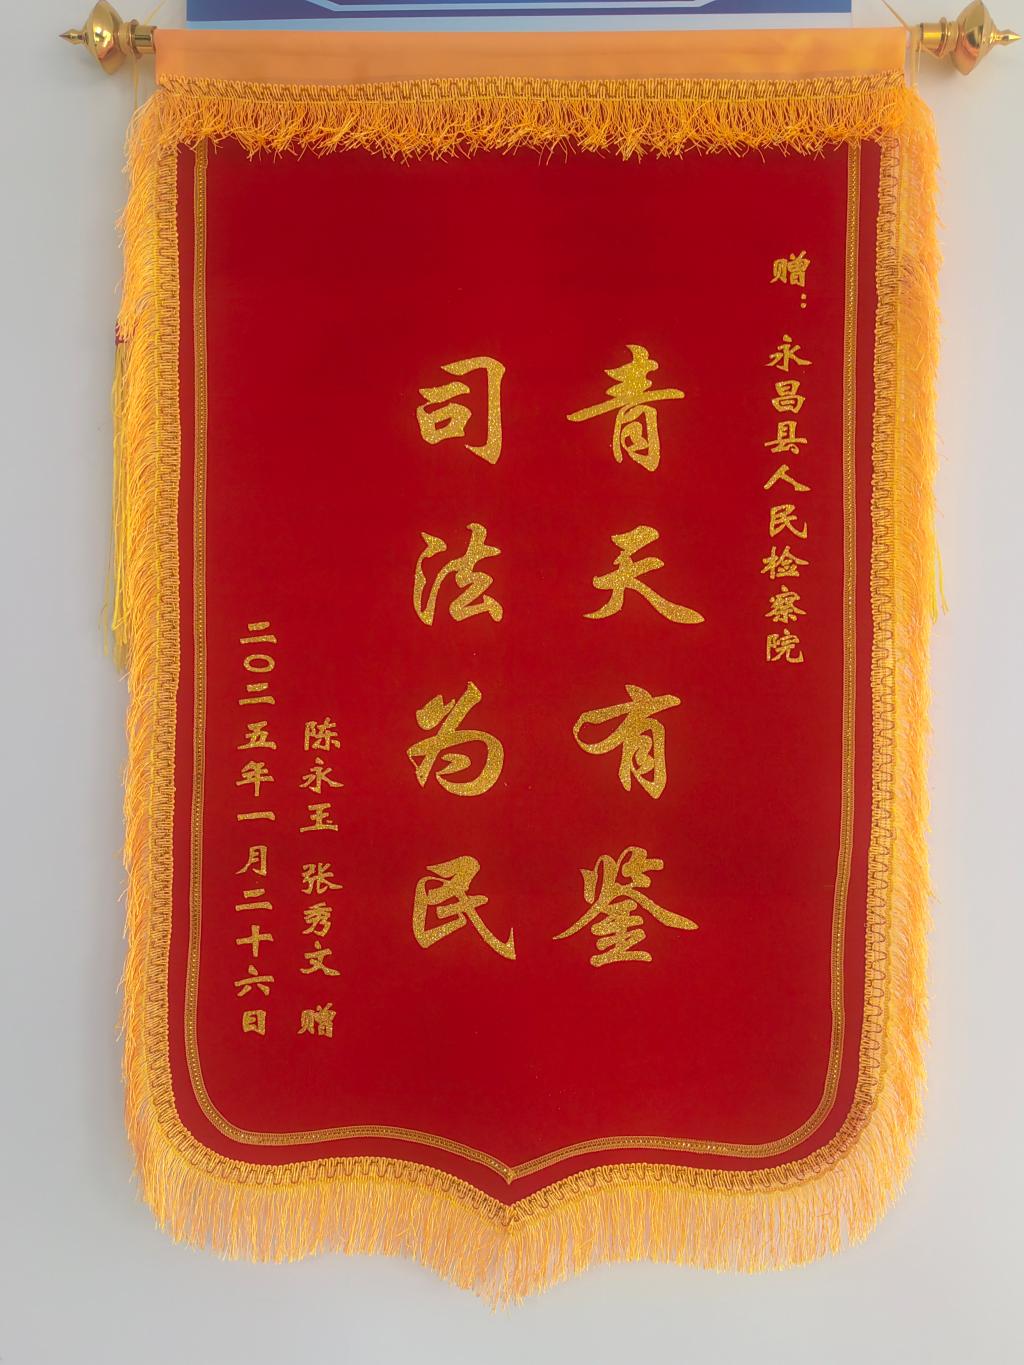 赠：永昌县人民检察院
青天有鉴
司法为民
陈永玉 张秀文 赠
二〇二五年一月二十六日